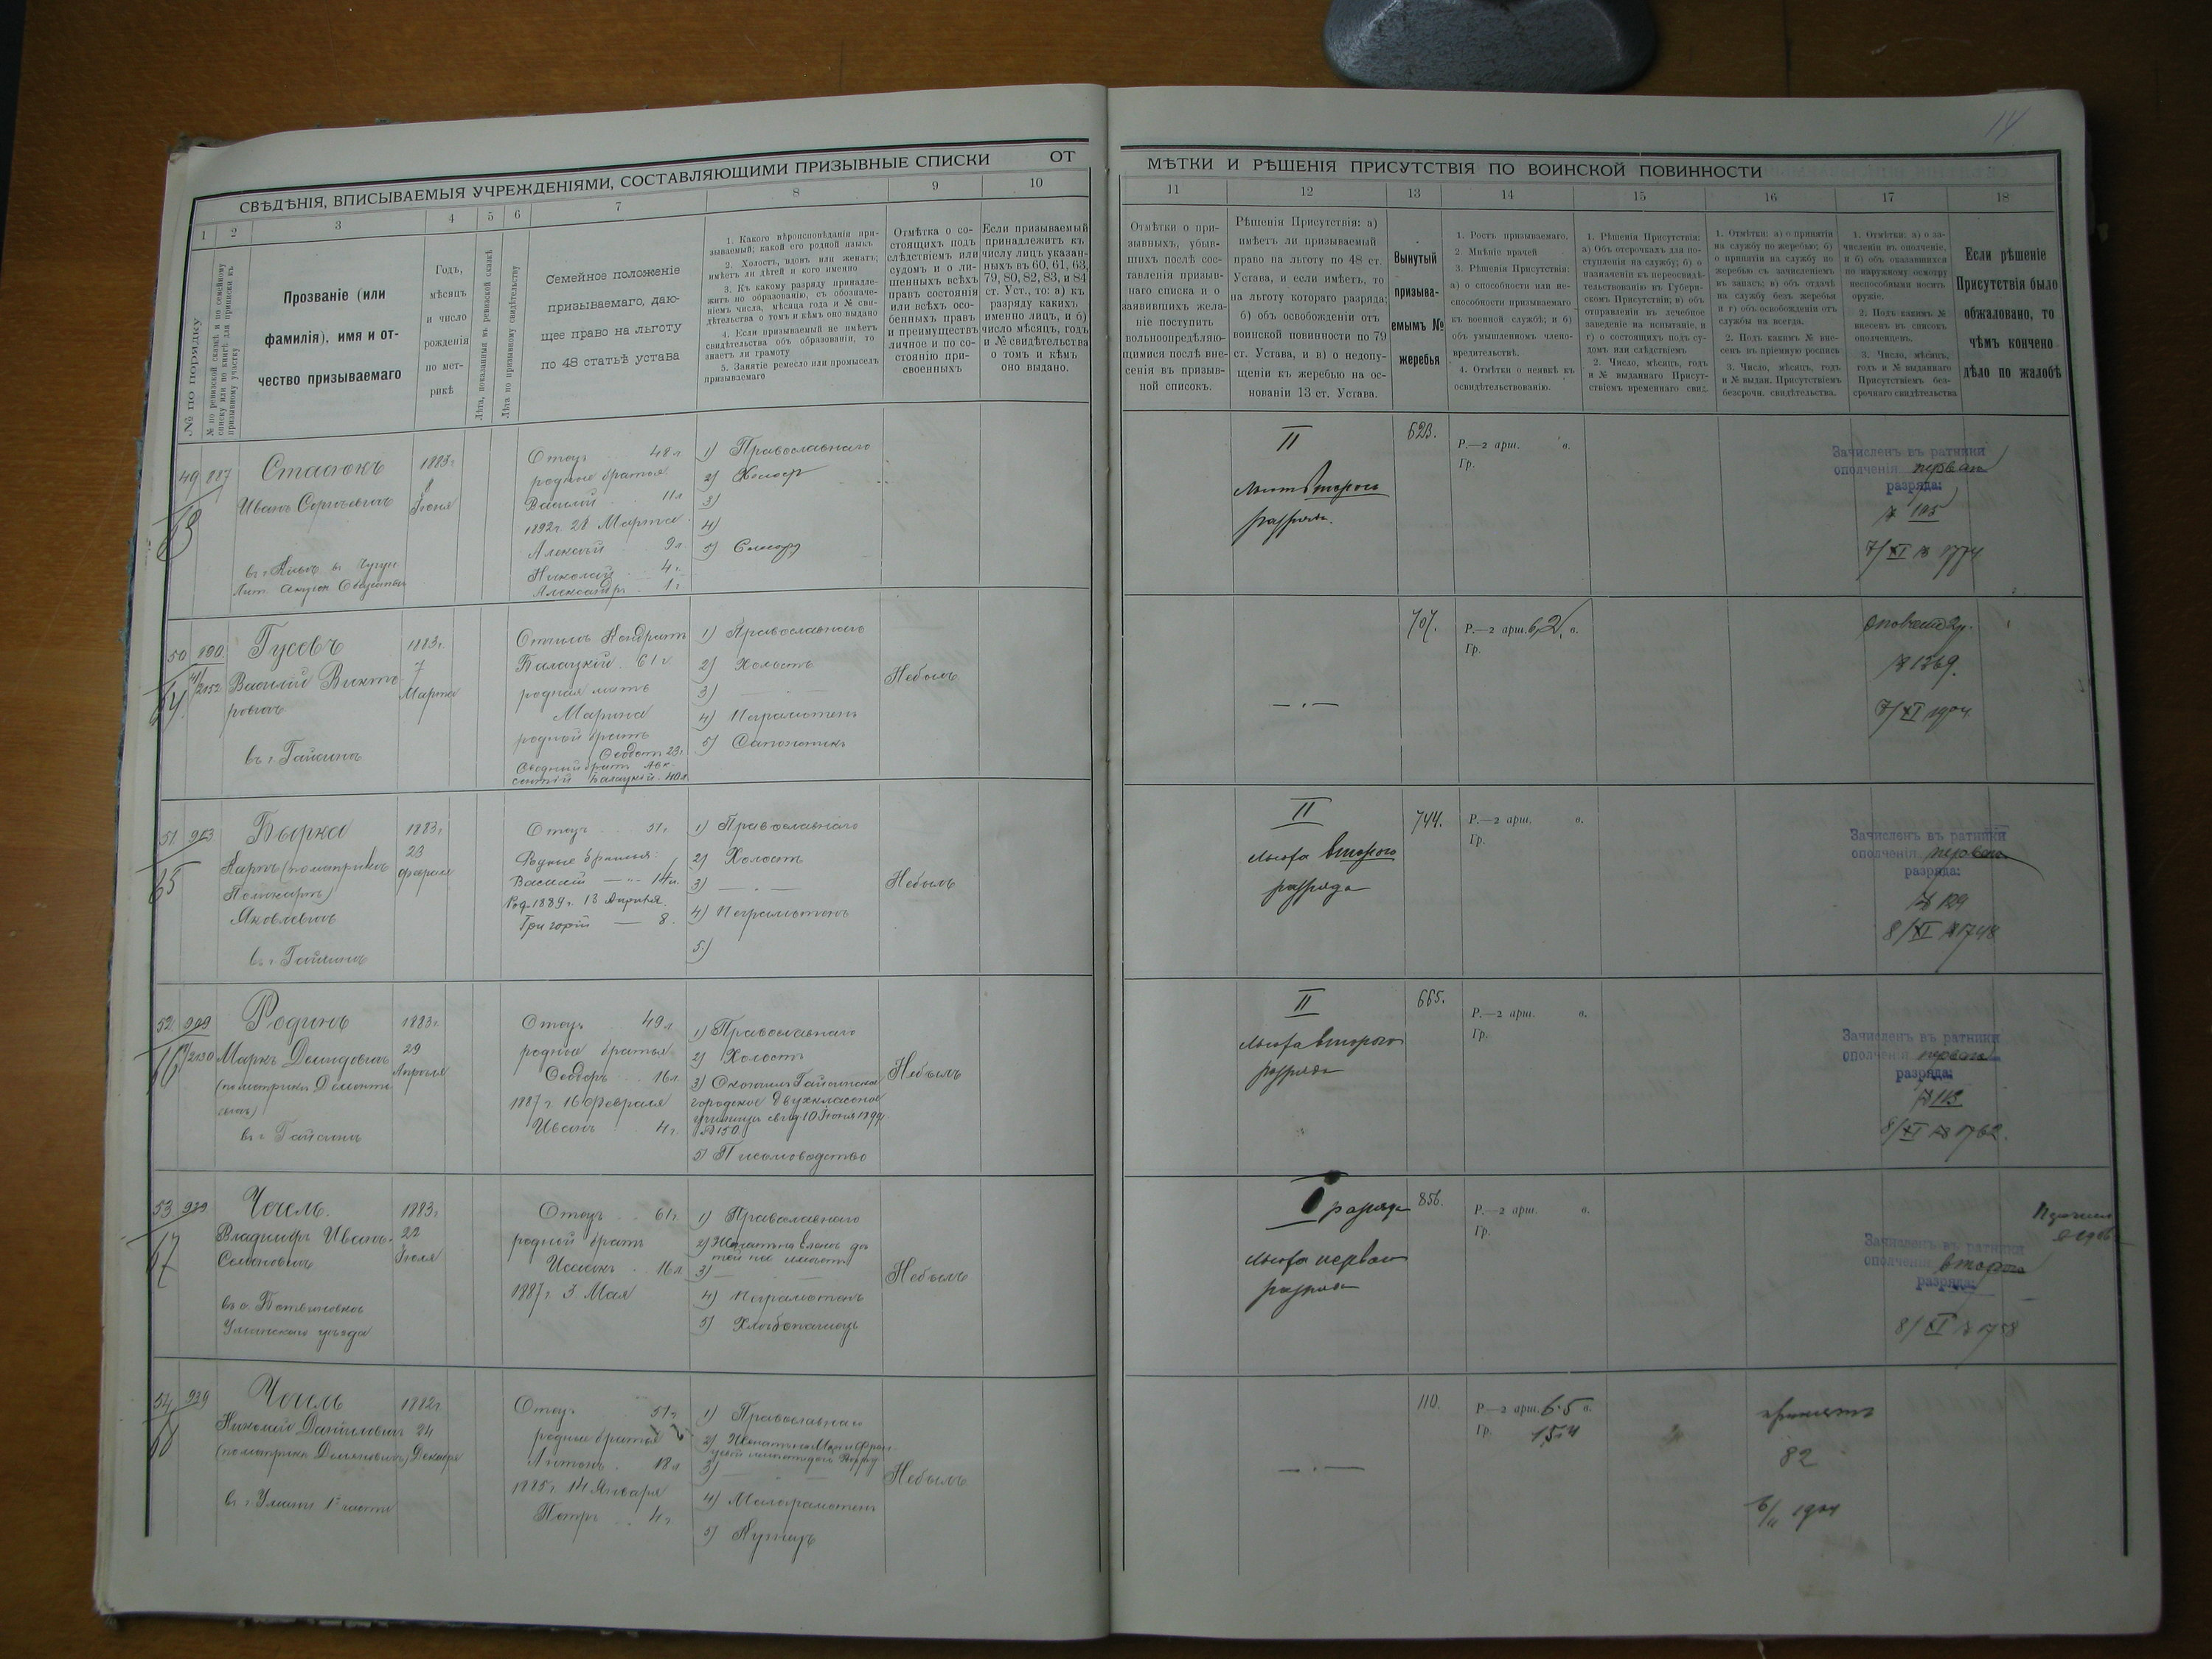 14
СВѢДѢНІЯ, ВПИСЫВАЕМЫЯ УЧРЕЖДЕНІЯМИ, СОСТАВЛЯЮЩИМИ ПРИЗЫВНЫЕ СПИСКИ
ОТ
МѢТКИ И РѢШЕНІЯ ПРИСУТСТВІЯ ПО ВОИНСКОЙ ПОВИННОСТИ
1 2 3 4 5 6 7 8 9 10
11 12 13 14 15 16 17 18
№ по порядку
Прозваніе (или
фамилія), имя и от-
чество призываемаго
Годъ,
мѣсяцъ
и число
рожденія
по мет-
рикѣ
Лѣта, показанныя въ ревизской сказкѣ
Лѣта по призывному свидѣтельству
Семейное положеніе
призываемаго, даю-
щее право на льготу
по 48 статьѣ устава
1. Какого вѣроисповѣданія при-
зываемый; какой его родной языкъ
2. Холостъ, вдовъ или женатъ;
имѣетъ ли дѣтей и кого именно
3. Къ какому разряду принадле-
житъ по образованію, съ обозначе-
ніемъ числа, мѣсяца года и № сви-
дѣтельства о томъ и кѣмъ оно выдано
4. Если призываемый не имѣетъ
свидѣтельства объ образованіи, то
знаетъ ли грамоту
5. Занятіе ремесло или промыселъ
призываемаго
Отмѣтка о со-
стоящихъ подъ
слѣдствіемъ или
судомъ и о ли-
шенныхъ всѣхъ
правъ состоянія
или всѣхъ осо-
бенныхъ правъ
и преимуществъ
личное и по со-
стоянію при-
своенныхъ
Если призываемый
принадлежитъ къ
числу лицъ указан-
ныхъ въ 60, 61, 63,
79, 80, 82, 83, и 84
ст. Уст., то: а) къ
разряду какихъ
именно лицъ, и б)
число мѣсяцъ, годъ
и № свидѣтельства
о томъ и кѣмъ
оно выдано.
Отмѣтки о при-
зывныхъ, убыв-
шихъ послѣ сос-
тавленія призыв-
наго списка и о
заявившихъ жела-
ніе поступить
вольноопредѣляю-
щимися послѣ вне-
сенія въ призыв-
ной списокъ.
Рѣшенія Присутствія: а)
имѣетъ ли призываемый
право на льготу по 48 ст.
Устава, и если имѣетъ, то
на льготу котораго разряда;
б) объ освобожденіи отъ
воинской повинности по 79
ст. Устава, и в) о недопу-
щеніи къ жеребью на ос-
нованіи 13 ст. Устава.
Вынутый
призыва-
емымъ №
жеребья
1. Ростъ призываемаго,
2. Мнѣніе врачей
3. Рѣшенія Присутствія:
а) о способности или не-
способности призываемаго
къ военной службѣ; и б)
объ умышленномъ члено-
вредительствѣ.
4. Отмѣтки о неявкѣ къ
освидѣтельствованію.
1. Рѣшенія Присутствія:
а) Объ отсрочкахъ для по-
ступленія на службу; б) о
назначеніи къ переосвидѣ-
тельствованію въ Губерн-
скомъ Присутствіи; в) объ
отправленіи въ лечебное
заведеніе на испытаніе, и
г) о состоящихъ подъ су-
домъ или слѣдствіемъ
2. Число, мѣсяцъ, годъ
и № выданнаго Присутст-
віемъ временнаго свид.
1. Отмѣтки: а) о принятіи
на службу по жеребью; б)
о принятіи на службу по
жеребью съ зачисленіемъ
въ запасъ; в) объ отдачѣ
на службу безъ жеребья
и г) объ освобожденіи отъ
службы на всегда.
2. Подъ какимъ № вне-
сенъ въ пріемную роспись
3. Число, мѣсяцъ, годъ
и № выдан. Присутствіемъ
безсрочн. свидѣтельства.
1. Отмѣтки: а) о за-
численіи въ ополченіе,
и б) объ оказавшихся
по наружному осмотру
неспособными носить
оружіе.
2. Подъ какимъ №
внесенъ въ списокъ
ополченцевъ.
3. Число, мѣсяцъ,
годъ и № выданнаго
Присутствіемъ без-
срочнаго свидѣтельства
Если рѣшеніе
Присутствія было
обжаловано, то
чѣмъ кончено
дѣло по жалобѣ
49 887
63
Иванъ Сергѣевичъ
1883г
8
Іюня
Отецъ 48 л
родные братья
Василій 11л
1892г. 28 Марта
Алексѣй 9л
Николай 4г.
Александръ 1г
1) Православнаго
2) Холост
3)
4)
5)
II
второго
разряда.
623.
Р.—2 арш. в.
Гр.
Зачисленъ въ ратники
ополченія перваго
разряда:
7/XI № 1774
50
64
Гусевъ
Василій Викто-
ровичъ
въ г. Гайсинѣ
1883г.
7
Марта
Отчимъ Кондратъ
Балацкій 61г
родная мать
Марина
родной братъ
Ѳеодотъ 23г
Сводный братъ
Балацкій 40л
1) Православнаго
2) Холостъ
3) —
4) Неграмотенъ
5) Сапожникъ
Небылъ
— . —
707.
Р.—2 арш. 6,2 в.
Гр.
№ 1369.
7/XI 1904
51 903
65
Бырка
Карпъ (по метрикѣ
Поликарпъ)
Яковлевичъ
въ г. Гайсинѣ
1883г
23
Февраля
Отецъ 51г
Родные братья:
Василій — 14л.
Род. 1889г. 13 Апрѣля.
Григорій — 8.
1) Православнаго
2) Холостъ
3) —
4) Неграмотенъ
5)
Небылъ
II
льгота второго
разряда
744.
Р.—2 арш. в.
Гр.
Зачисленъ въ ратники
ополченія перваго
разряда:
№ 129
8/XI № 1748
52 909
66
Родинъ
Маркъ
въ г. Гайсинѣ
1883г.
29
Апрѣля
Отецъ 49л
родные братья
Ѳеодоръ 16л
1887г. 16 Февраля
Иванъ 4г.
1) Православнаго
2) Холостъ
3) Окончилъ Гайсинское
городское Двухклассное
училище свид. 10 Іюня 1899
№ 150
5) Писмоводство
Небылъ
II
льгота второго
разряда
665.
Р.—2 арш. в.
Гр.
Зачисленъ въ ратники
ополченія перваго
разряда:
№ 113
8/XI № 1762.
53 939
67
Чечель.
Владиміръ Иванъ
Семеновичъ
Уманскаго уѣзда
1883г.
22
Іюля
Отецъ 61г
родной братъ
Исаакъ 16л
1887г 3 Мая
1) Православнаго
3) —
4) Неграмотенъ
5) Хлѣбопашецъ
Небылъ
I разряда
льгота перваго
разряда
856.
Р.—2 арш. в.
Гр.
Зачисленъ въ ратники
ополченія второго
разряда:
8/XI № 1758
54 939
68
Чечель
Николай Даниловичъ
въ г. Умани 1й части
1882г
24
Декабря
Отецъ 51г
родные братья
Антонъ 18л
1885г. 14 Января
Петръ 4г
1) Православнаго
3) —
4) Малограмотенъ
5)
Небылъ
— . —
110.
Р—2 арш. 6.5 в.
Гр.
принятъ
82
6/11 1904